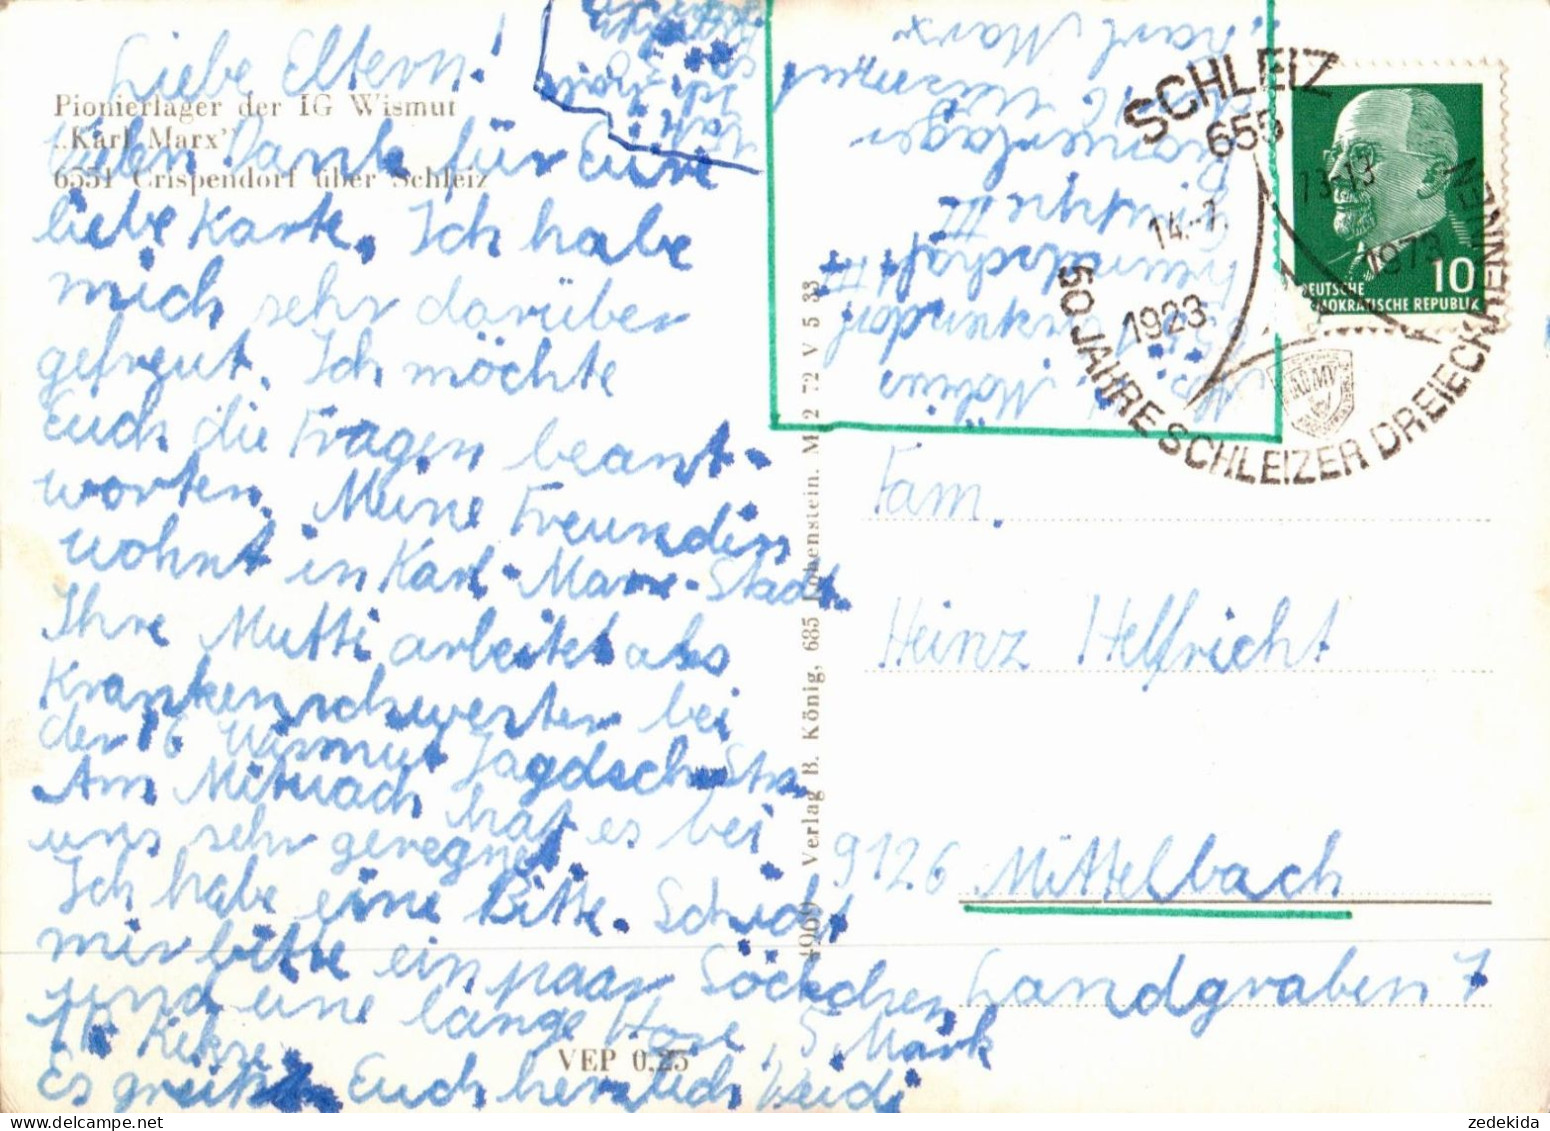 Liebe Eltern!
Pionierlager der IG Wismut
„Karl Marx"
6551 Crispendorf über Schleiz
Vielen Dank für Eure
liebe Karte. Ich habe
mich sehr darüber
gefreut. Ich möchte
Euch die Fragen beant-
worten. Meine Freundin
wohnt in Karl-Marx-Stadt.
Ihre Mutti arbeitet als
Krankenschwester bei
der IG Wismut Jagdsch. Str.
Am Mitwoch hat es bei
uns sehr geregnet.
Ich habe eine Bitte. Schickt
mir bitte ein paar Söckchen,
und eine lange Hose, 5 Mark
1 P. Kekse.
Es grüßt Euch herzlich Heidi
VEP 0,25
4969 Verlag B. König, 685 Lobenstein. M 2 72 V 5 33
Abs.
6551 Crispendorf
Freundschaft III
Gruppe III
Pionierlager
der IG Wismut
„Karl Marx"
SCHLEIZ
655
14.-7.
13-13
1923
1973
50 JAHRE SCHLEIZER DREIECKRENNEN
10
DEUTSCHE
DEMOKRATISCHE REPUBLIK
Fam.
Heinz Helfricht
9126 Mittelbach
Landgraben 7
zedekida